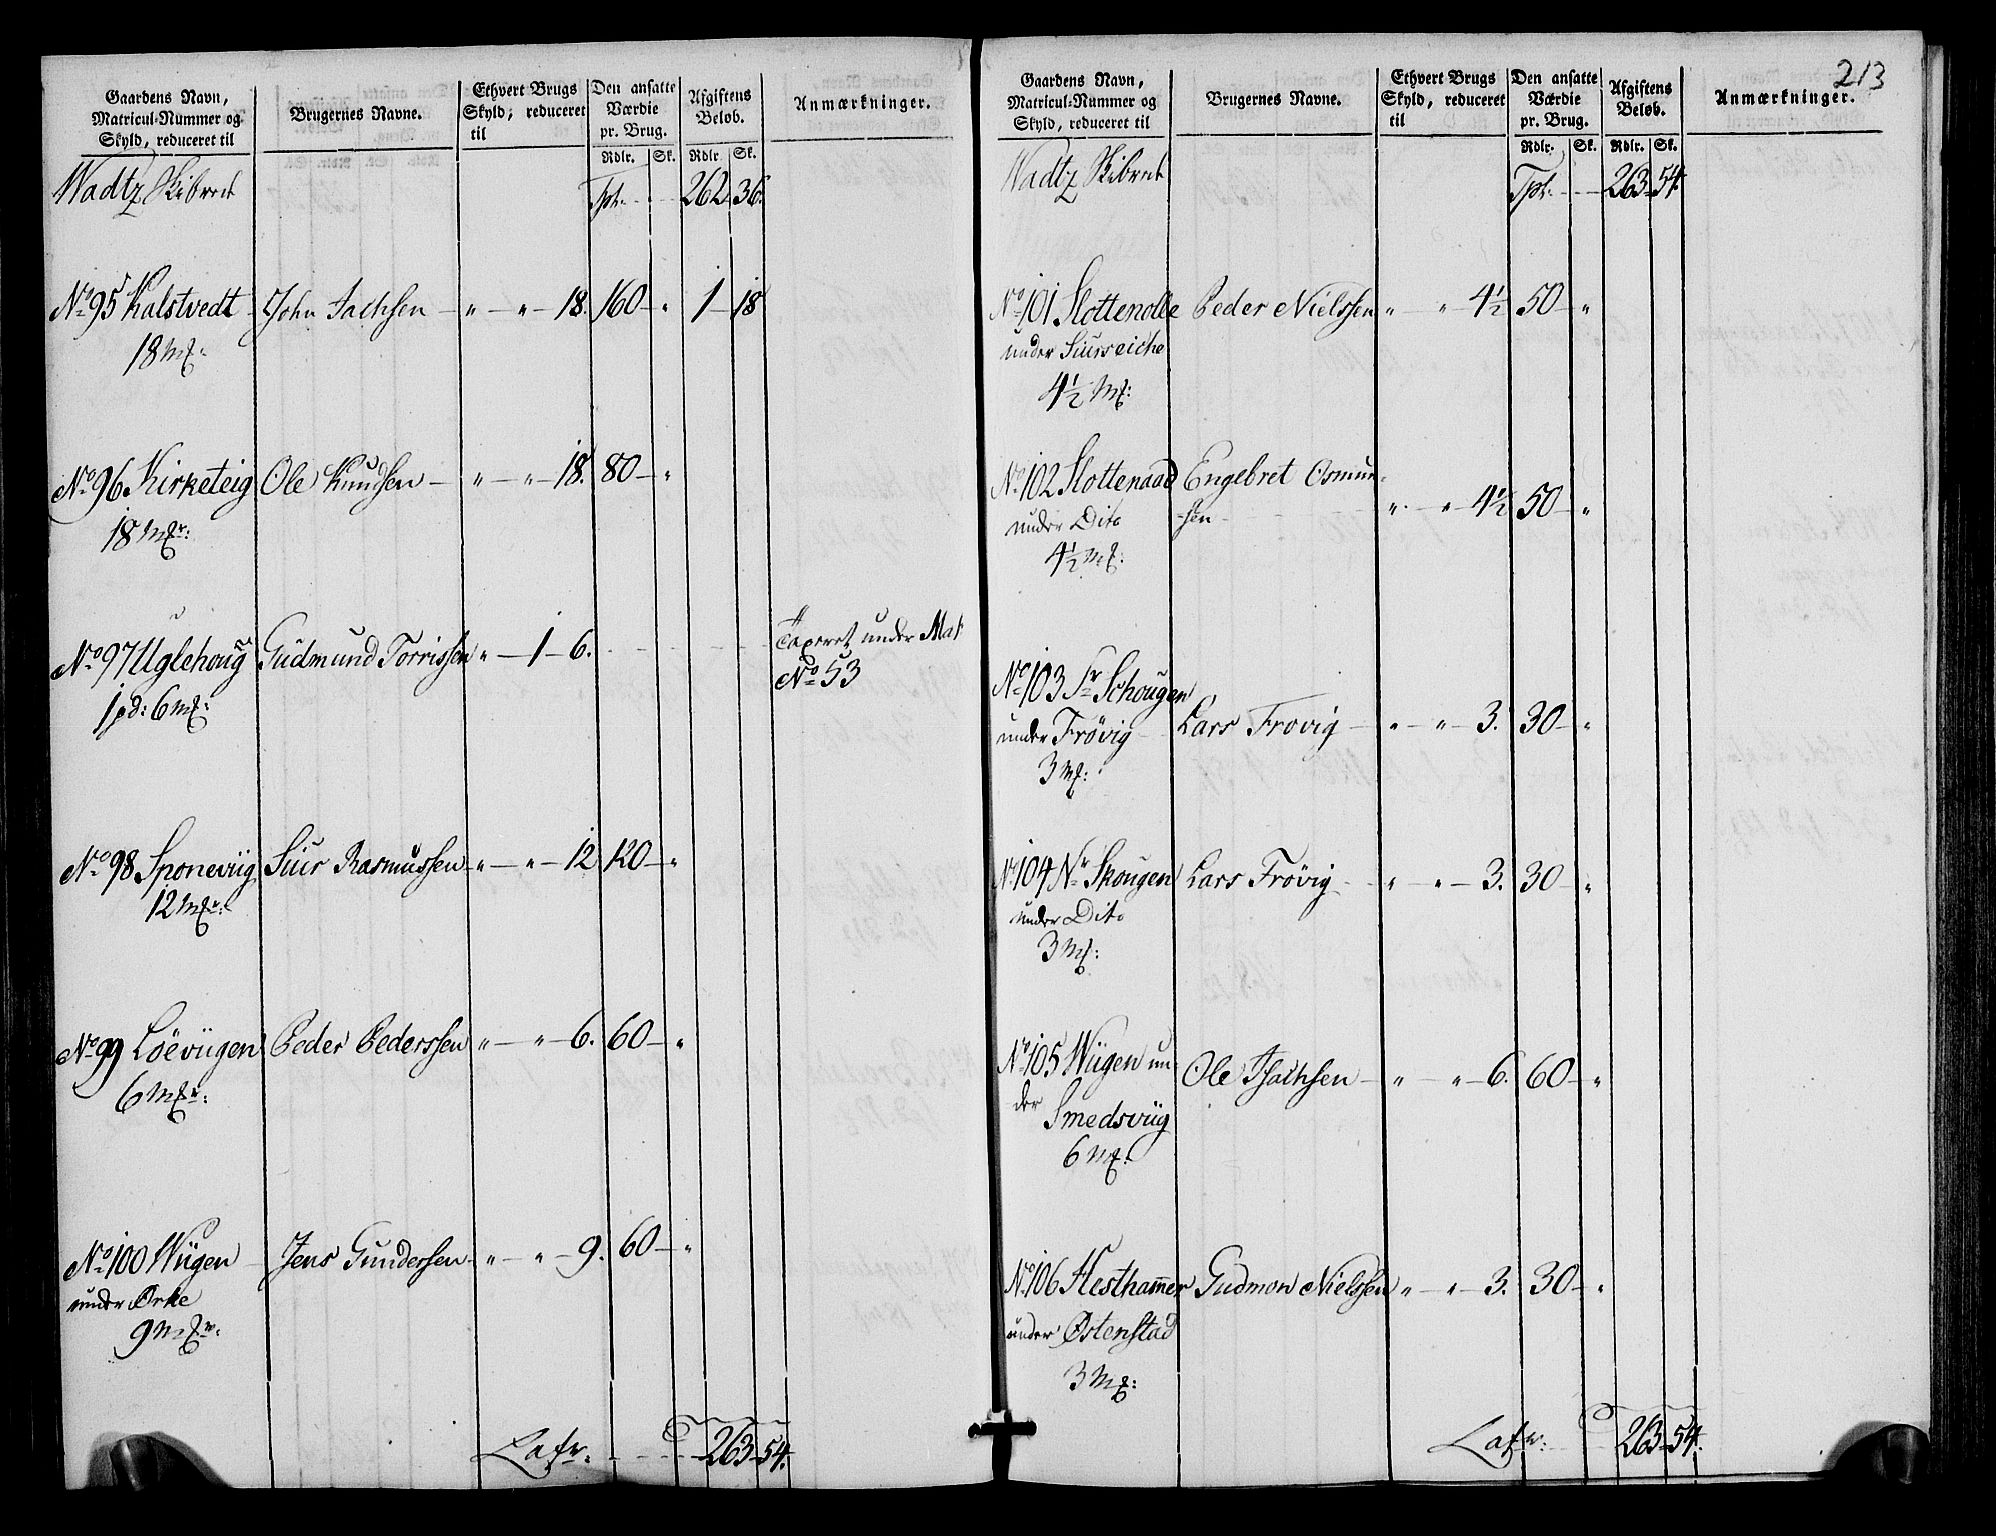 Gaardens Navn, Matricul-Nummer og Skyld, reduceret til | Brugernes Navne. | Ethvert Brugs Skyld, reduceret til | Den ansatte Værdie pr. Brug. Rdlr. Sk. | Afgiftens Beløb. Rdlr. Sk. | Anmærkninger.
Wadtz Skibred Tpt: 262 36.
No 95 Kalstvedt John Jachsen " " 18. 160 " 1 18
18 mk:
No 96 Kirketeig Ole Knudsen " " 18. 80 "
18 mkr:
No 97 Uglehoug Gudmund Torrissen " 1 6. Taxeret under Mat
1 pd: 6 mk: No 53
No 98 Sponeviig Siur Rasmussen " " 12 120 "
12 mkr:
No 99 Löeviigen Peder Pederssen " " 6. 60 "
6 mkr:
No 100 Wiigen Jens Gundersen " " 9. 60 "
under Ørke
9 mkr:
Lafr: 263 54.
213
Gaardens Navn, Matricul-Nummer og Skyld, reduceret til | Brugernes Navne. | Ethvert Brugs Skyld, reduceret til | Den ansatte Værdie pr. Brug. Rdlr. Sk. | Afgiftens Beløb. Rdlr. Sk. | Anmærkninger.
Wadtz Skibred Tpt: 263 54.
No 101 Slottenolle Peder Nielssen " " 4½ 50 "
under Siurseiche
4½ mk:
No 102 Slottenaad Engebret Osmun-
under Dito -sen " " 4½ 50 "
4½ mk:
No 103 Sr Schougen
under Frövig Lars Frovig " " 3. 30 "
3 mk:
No 104 Nr Skougen Lars Frövig " " 3. 30 "
under Dito
3 mk:
No 105 Wiigen un-
der Ole Isachsen " " 6. 60 "
Smedsviig
6 mk:
No 106 Hestham̅er Gudmon Nielssen " " 3. 30 "
under Østenstad
3 mk:
Lafr: 263 54.